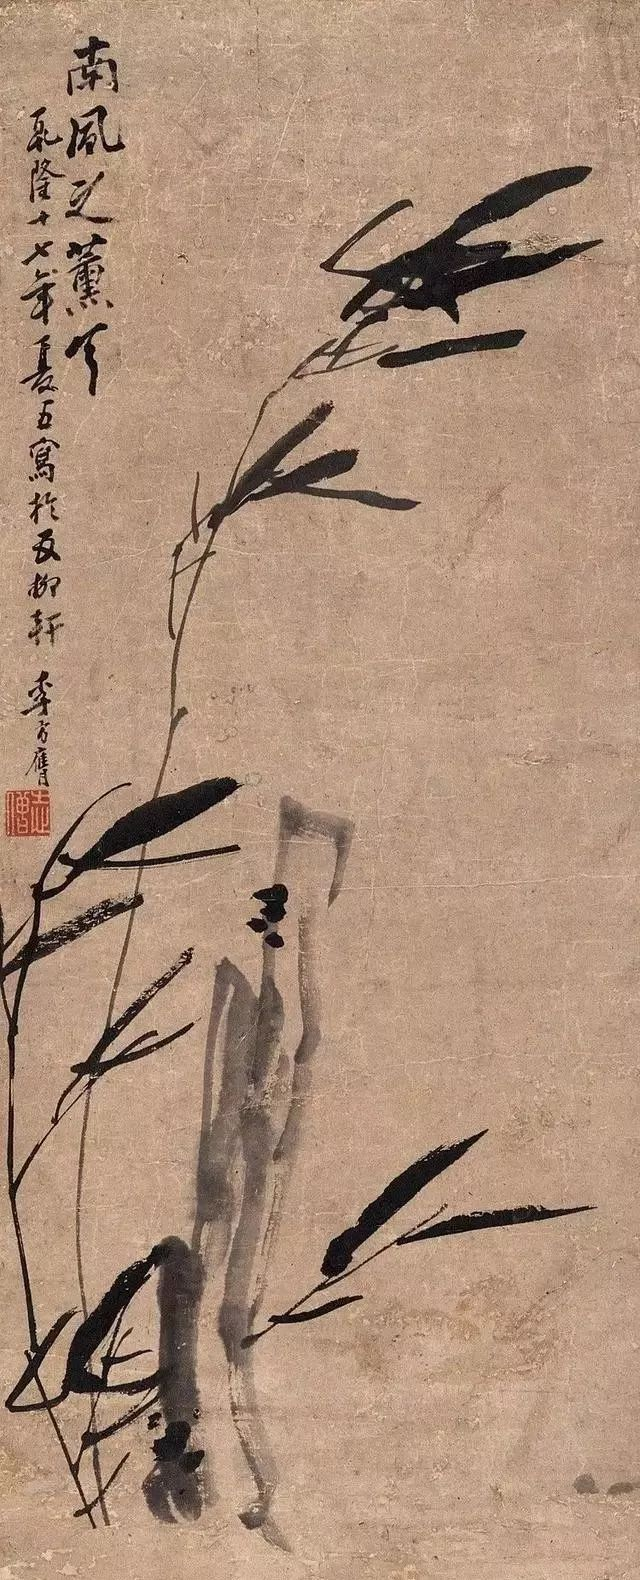 南風之薰兮
乾隆十七年夏五寫於五柳軒
李方膺